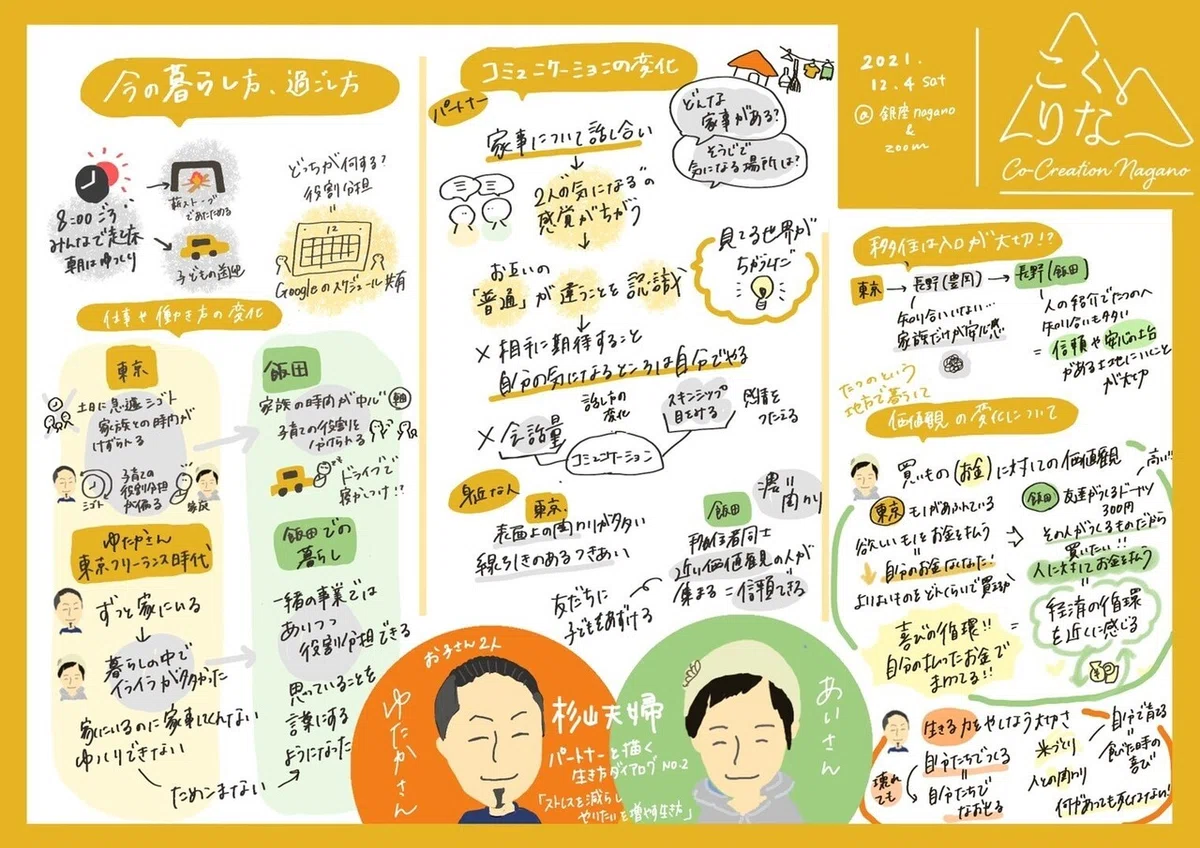 今の暮らし方、過ごし方
8:00ごろ
みんなで起床
朝はゆっくり
薪ストーブ
であたためる
子どもの送迎
どっちが何する?
役割分担
12
Googleのスケジュール共有
仕事や働き方の変化
東京
土日に急遽シゴト
家族との時間が
けずられる
子育ての
役割分担
が偏る
シゴト
家庭
ゆたかさん
東京フリーランス時代
ずっと家にいる
暮らしの中で
イライラが多かった
家にいるのに家事してくんない
ゆっくりできない
ためこまない
飯田
家族の時間が中心
子育ての役割を
分けられる
ドライブで
寝かしつけ!?
飯田での
暮らし
一緒の事業では
あいつつ
役割分担できる
思っていることを
言葉にする
ようになった
コミュニケーションの変化
パートナー
家事について話し合い
どんな
家事がある?
そうじで
気になる場所は?
2人の"気になる"の
感覚がちがう
お互いの
「普通」が違うことを認識
見てる世界が
ちがうんだ
×相手に期待すること
自分の気になるところは自分でやる
×会話量
話し方の
変化
スキンシップ
目をみる
感情を
つたえる
コミュニケーション
身近な人
東京
表面上の関わりが多い
線引きのあるつきあい
飯田
濃い関わり
移住者同士
近い価値観の人が
集まる=信頼できる
友だちに
子どもをあずける
お子さん2人
ゆたかさん
杉山夫婦
パートナーと描く
生き方ダイアログ NO.2
「ストレスを減らし
やりたいを増やす生き方」
あいさん
2021.
12.4 sat
@銀座nagano
&
zoom
こくりな
Co-Creation Nagano
移住は入口が大切!?
東京
長野(豊岡)
長野(飯田)
知り合いいない…
家族だけが安心感
人の紹介でたつのへ
知り合いも多い
=信頼や安心の土台
がある土地にいくこと
が大切
たつのという
地方で暮らして
価値観の変化について
買いもの(お金)に対しての価値観
東京
モノがあふれている
欲しいものをお金を払う
自分のお金がなくなった!
よりよいものをどんくらいで買うか
喜びの循環!!
自分の払ったお金で
まわってる!!
飯田
友達がつくるドーナツ
300円
高い!!
その人がつくるものだから
買いたい!!
人に対してお金を払う
経済の循環
を近くに感じる
生きる力をやしなう大切さ
自分たちでつくる
壊れ
ても
自分たちで
なおせる
米づくり
人との関わり
自分で育てる
食べた時の
喜び
何があっても死んでない!